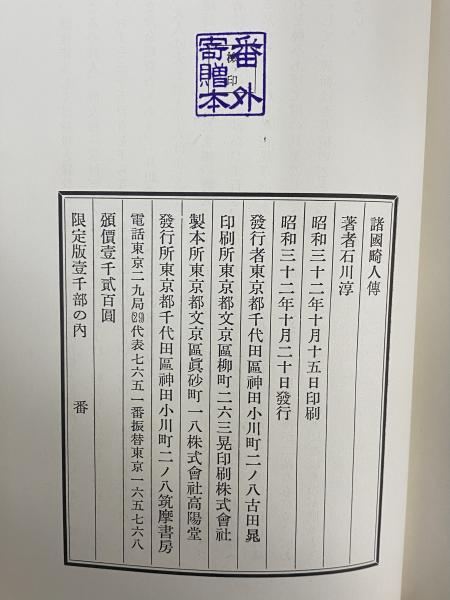 番外
寄贈本
檢印
諸國畸人傳
著者石川淳
昭和三十二年十月十五日印刷
昭和三十二年十月二十日發行
發行者東京都千代田區神田小川町二ノ八古田晁
印刷所東京都文京區柳町二六三晃印刷株式會社
製本所東京都文京區眞砂町一八株式會社高陽堂
發行所東京都千代田區神田小川町二ノ八筑摩書房
電話東京二九局(29)代表七六五一番振替東京一六五七六八
頒價壹千貳百圓
限定版壹千部の內 番